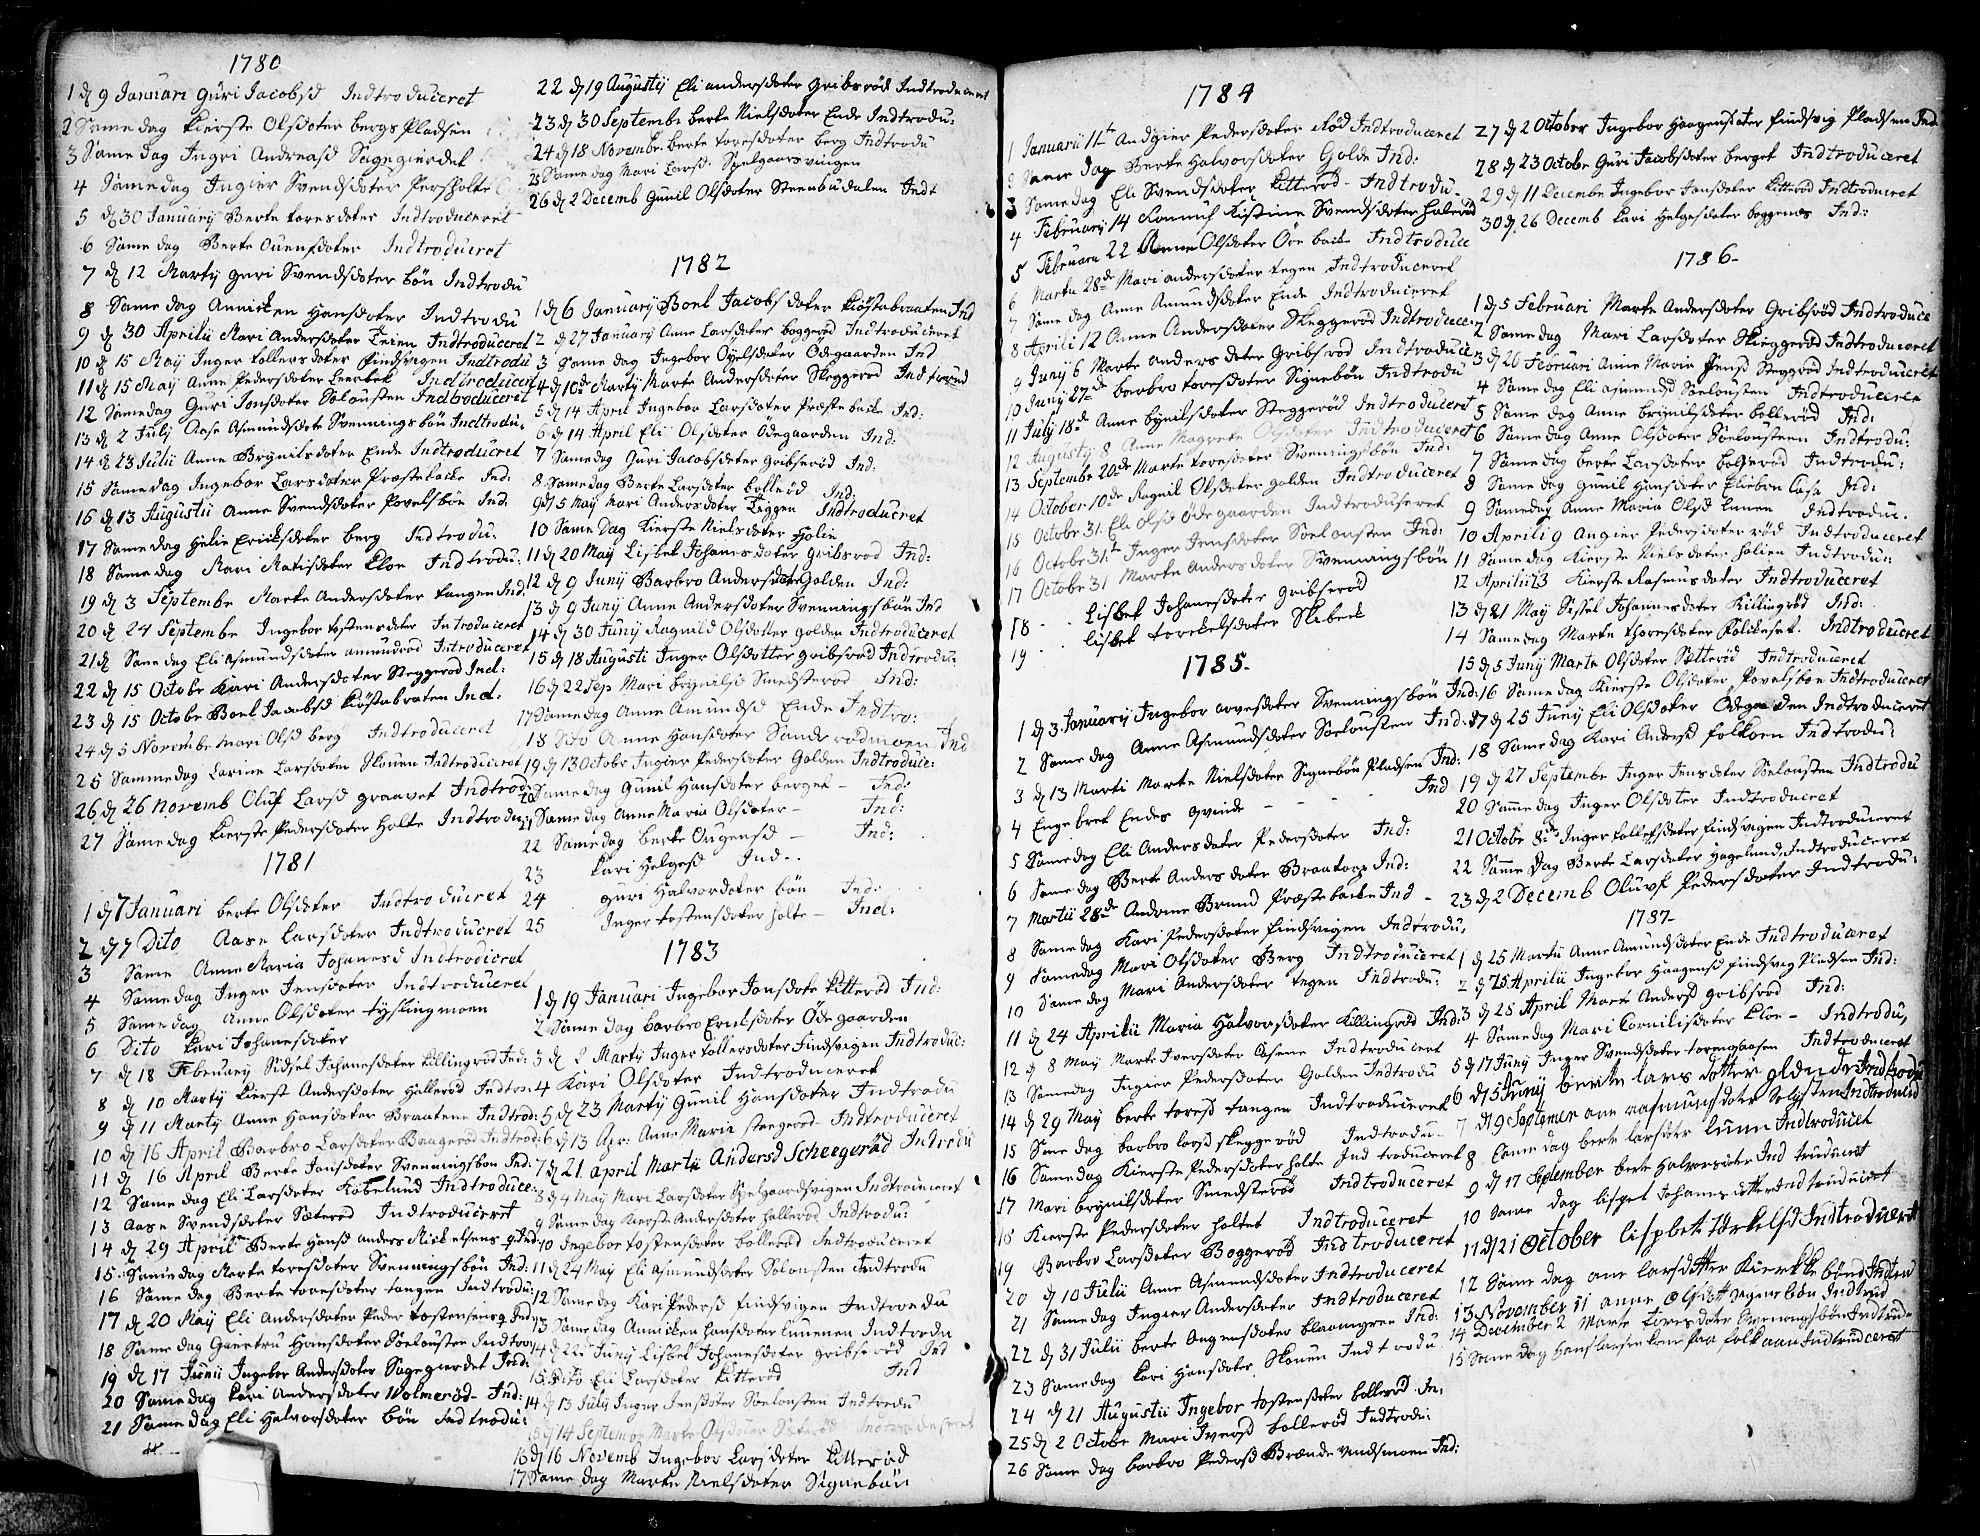 1780
1 d 9 Januari Guri Jacobsd Indtroduceret
2 Samedag Kierste Olsdater bergs Pladsen
3 Samedag Ingri Andreasd Sagegierdet
4 Samedag Ingier Svendsdater Persholte
5 d 30 Januarÿ Berte toresdater Indtroduceret
6 Samedag Berte Ouensdater Indtroduceret
7 d 12 Martÿ guri Svendsdater bön Indtrodu
8 Samedag Anniken Hansdater Indtrodu
9 d 30 Aprilii Mari Andersdater Teien Indtroduceret
10 d 15 Maÿ Inger tollersdater findsvigen Indtrodu
11 d 15 Maÿ Anne Pedersdater Leerbek Indtroducert
12 Samedag Guri Jonsdater Solousten Indtroduceret
13 d 2 Julÿ Aase Asmundsdate Svenningsbön Indtrodu:
14 d 23 Julii Anne Brÿnilsdater Ende Indtroducret
15 Samedag Ingebor Larsdater Præstebacke Ind:
16 d 13 Augustii Anne Svendsdater Povelsbön Ind.
17 Samedag Helie Ericksdater berg Indtrodu.
18 Samedag Mari Matisdater Kloe Indtrodu:
19 d 3 Septembe Marte Andersdater tangen Ind:
20 d 24 Septembe Ingebor tostensdater Introduceret
21 d Samedag Eli Asmundsdater amundrød Introduceret
22 d 15 Octobr Kari Andersdater Steggerød Ind:
23 d 15 Octobe Boel Jacobsd Kiöstabraten Ind.
24 d 5 Novembe Mari Olsd berg Indtroduceret
25 Sammedag Karine Larsdater Skouen Indtroduceret
26 d 26 novemb Oluf Larsd graavet Indtrod:
27 Samedag Kierste Pedersdater Holte Indtrodu:
1781
1 d 7 Januari berte Olsdater Indtroducret
2 d 7 Dito Aase Larsdater Indtroduceret
3 Same Anne Maria Johanesd Indtrodicret
4 Samedag Inger Jensdater Indtroduceret
5 Samedag Anne Olsdater tÿslingmoen
6 Dito Kari Johanesdater
7 d 18 Februarÿ Sidsel Johanesdater Killingrød Ind:
8 d 10 Martÿ Kierst Andersdater Hallerød Indtro:
9 d 11 Martÿ Anne Hansdater Braatene Indtrod:
10 d 16 April Barbro Larsdater Baagerød Indtrod:
11 d 16 April Berte Jonsdater Svenningsbon Ind:
12 Samedag Eli Larsdater Købelund Indtroduce:
13 Aase Svendsdater Sæterød Indtroduceret
14 d 29 April Berte Hansd anders Mickelsens q Ind:
15 Samedag Merte toresdater Svenningsbön Ind:
16 Samedag Berte toresdater tangen Indtrodu:
17 d 20 Maÿ Eli Andersdater Peder tostensens q Ind:
18 Samedag Gaertru Hansdater Söelousten Indtrou
19 d 17 Junii Ingebor Andersdater Sagegierdet Ind:
20 Samedag Kari Andersdater Wolmerød Ind:
21 Samedag Eli Halvorsdater bön Indtrodu:
22 d 19 Augustÿ Eli andersdater Gribsrød Indtroduceret
23 d 30 Septembe berte Nielsdater Ende Indtrodu:
24 d 18 Novembe berte toresdater berg Indtrodu
25 Samedag Mari Larsd Spelgaarsvingen
26 d 2 Decemb Gunil Olsdater Steenbudalen Indt
1782
1 d 6 Januarÿ Boel Jacobsdater Kiöstabraaten Ind
2 d 27 Januarÿ Anne Larsdater boggerød Indtroduceret
3 Samedag Ingebor Oÿelsdater Ödegaarden Ind
4 d 10de Martÿ Marte Andersdater Skeggerød Indtroud
5 d 14 April Ingebor Larsdater Præstebacke Ind:
6 d 14 April Eli Olsdater Ödegaarden Ind:
7 Samedag Guri Jacobsdater Gribserød Ind:
8 Samedag Berte Larsdater bollerød Ind:
9 d 5 Maÿ Mari Andersdater Teggen Indtroducret
10 Same Dag Kierste Nielsdater Hölie
11 d 20 Maÿ Lisbet Johanesdater Gribsrød Ind:
12 d 9 Junÿ Barbro Andersdater Golden Ind:
13 d 9 Junÿ Anne Andersdater Svenningsbön Ind
14 d 30 Junÿ Ragnild Olsdatter Golden Indtroduceret
15 d 18 Augusti Inger Olsdatter Gribsrød Indtrodu:
16 d 22 Sep Mari brÿnilsd Smedsterød Ind:
17 Samedag Anne Amundsd Ende Indtro:
18 Dito Anne Hansdater Sanderødmoen Ind
19 d 13 Octobe Ingier Pedersdater Golden Indtroduce:
20 Samedag Gunil Hansdater berget – Ind:
21 Samedag Anne Maria Olsdater – Ind:
22 Samedag berte Ougensd – Ind:
23 Kari Helgesd Ind..
24 guri Halvordater bön Ind:
25 Inger tostensdater holte – Ind:
1783
1 d 19 Januari Ingebor Jonsdate Kitterød Ind:
2 Samedag barbro Ericksdater Ödegaarden
3 d 2 Martÿ Inger tollersdater Findsvigen Indtroduc:
4 Kari Olsdater Indtroduceret
5 d 23 Martÿ Gunil Hansdater Indtrodu
6 d 13 Apr: Anne Maria steegerød Indtroduceret
7 d 21 april Martii Andersd Scheegerød Indtrodu
8 d 4 Maÿ Mari Larsdater Spelgaardsvigen Indtroduceret
9 Samedag Kierste Andersdater hallerød Indtrodu:
10 Ingebor tostensdater bollerød Indtroduceret
11 d 24 Maÿ Eli Asmundsdater Solousten Indtrodu
12 Samedag Kari Pedersd findsvigen Indtroedu
13 Samedag Annicken hansdater Luuenen Indtrodu
14 d 22 Junÿ Lisbet Johanesdater gribserød Ind
15 Dito Eli Larsdater Kitterød Ind
14 d 13 Julÿ Inger Jensdater Soelousten Indtrodu
15 d 14 Septembe Marte Olsdater Sæterød Indtroduceret
16 d 16 Novemb Ingebor Larsdater Kitterød
17 Samedag Marte Nielsdater Signebön
1784
1 Januarii 11te Andgier Pedersdater Rød Indtroduceret
2 Same Dag Berte Halvorsdater Golde Ind:
3 Samedag Eli Svendsdater Kitterød Indtrodu.
4 Februarÿ 14 Kistine Svendsdater Halerød
5 Februaru 22 Anne Olsdater Öre backe Indtroduce
6 Martii 28de Mari andersdater tegen Indtroduceret
7 Samedag Anne Amundsdater Ende Indtroduceret
8 Aprili 12 Anne Andersdater Skeggerød Indtroduce:
9 Junÿ 6 Marte andersdater Gribsrød Indtroduce
10 Junÿ 27de barbro toresdater Signebön Indtrodu
11 Julÿ 18de Anne Eÿnilsdater Steggerød Indtroduceret
12 Augustÿ 8 Anne Magrete Olsdater Indtroduceret
13 September 20de Marte toresdater Svenningsbön Ind:
14 October 10de Ragnil Olsdater golden Indtroduceret
15 Octobr 31. Eli Olsd Ödegaarden Indtroduseret
16 October 31te Inger Jensdater Soelousten Ind:
17 October 31 Marte Andersdater Svenningsbön
18 Lisbet Johanesdater Gribserød
19 Lisbet torckelsdater Skibeck
1785
1 d 3 Januarÿ Ingebor arvesdater Svenningsbön Ind:
2 Samedag Anne Asmundsdater Soelousten Ind:
3 d 13 Marti Marte Nielsdater Signebön Pladsen Ind:
4 Engebret Endes qvinde – – – Ind
5 Samedag Eli Andersdater Pedersdater Ind:
6 Samedag Berte Andersdater Braatorp Ind:
7 Martii 28de Andrine Brund Præstebacke Ind –
8 Samedag Kari Pedersdater findsvigen Indtrodu,
9 Samedag Mari Olsdater Berg Indtroduceret
10 Samedag Mari Andersdater tegen Indtrodu:
11 d 24 Aprilii Maria Halvorsdater Killingrød Ind:
12 d 8 Maÿ Marte Iversdater Asene Indtroduceret
13 Samedag Ingier Pedersdater Golden Indtrodu
14 d 29 Maÿ berte toresd tangen Indtroduceret
15 Samedag barbro larsd skeggerød Indtrodu –
16 Samedag Kierste Pedersdater holte Indtroduceret
17 Mari brÿnilsdater Smedsterød Indtroduceret
18 Kierste Pedersdater holtet Indtroduceret
19 Barbro Larsdater Boggerød Indtroduceret
20 d 10 Julii Anne Asmundsdater Indtroduceret
21 Samedag Ingier Andersdater Indtroduceret
22 d 31 Julii berte Ougensdater Klavangren Ind:
23 Samedag Kari Hansdater Skouen Indtrodu
24 d 21 Augustii Ingebor tostensdater bollerød In:
25 d 2 Octobe Mari Iversd bollerød Indtrodu:
26 Same dag barbro Pedersd Brændevendsmoen Ind:
27 d 2 October Ingebor Haagensdater findsvig Pladsen Ind:
28 d 23 Octobe Guri Jacobsdater berget Indtroduceret
29 d 11 Decembe Ingebor Jonsdater Kitterød Indtroduceret
30 d 26 Decemb Kari Helgesdater boggenes Ind:
1786
1 d 5 Februari Marte Andersdater Gribsrød Indtroduce
2 Samedag Mari Larsdater Skieggerød Indtroduceret
3 d 26 Februari Anne Maria Jensd Steggrød Indtroduceret
4 Samedag Eli Asmundsd Soelousten Indtroduceret
5 Samedag Anne brÿnilsdater bollerød Ind:
6 Samedag Anne Olsdater Soelousteen Indtrodu:
7 Samedag berte Larsdater bollerød Indtrodu:
8 Samedag Gunil Hansdater Kliebon Casa Ind:
9 Samedag Anne Maria Olsd Lunen Indtrodu.
10 Aprili 9 Angier Pedersdater rød Indtroduceret
11 Samedag Kierste Nielsdater holien Indtrodu:
12 Aprilii 23 Kierste Rasmusdater Indtroduceret
13 d 21 Maÿ Sissel Johannesdater Killingrød Ind:
14 Samedag Marte thoresdater Folckeset. Indtroduceret
15 d 5 Junÿ Marte Olsdater Sætterød Indtroduceret
16 Samedag Kierste Olsdater Povelsbön Indtroduceret
17 d 25 Junÿ Eli Olsdater Ödegaarden Indtroduceret
18 Samedag Kari Andersd folkoen Indtrodu:
19 d 27 Septembe Inger Jensdater Soelousten Indtrodu
20 Samedag Inger Olsdater Indtroducret
21 Octobe 8de Inger tollefsdater findsvigen Indtroduceret
22 Same Dag Berte Larsdater Hagelund, Indtroduceret
23 d 2 Decemb Oluvf Pedersdater Indtrodu:
1787
1 d 25 Martii Anne Amundsdater Ende Indtroduceret
2 d 25 Aprilii Ingebor Haagensd findsvig Pladsen Ind:
3 d 25 April Marte Andersd gribsrød Ind:
4 Samedag Mari Cornilisdater Kloe – Indtrodu,
5 d 17 Junÿ Inger Svendsdater tormoaasen Indtroduceret
6 d 5 Junÿ berte lars dotter olden Indtrodu
7 d 9 Septemer ane rasmunsdater Indtroduced
8 Samedag berte larsdter lunn Indtroducet
9 d 17 September berte Halvorsdater Indtruduceret
10 Same dag lisget Johans dotter Indtruduceret
11 d 21 October lispbet törkelsd Indtroduceret
12 Same dag ane larsdotter Kierkkebönd Indtrud
13 November 11 anne Olsdott signebön Indtrud
14 December 2 Marte toresdater Svenningsbön Indtrud
15 Samedag Hans larsen kone paa folkaan Indtruduceret